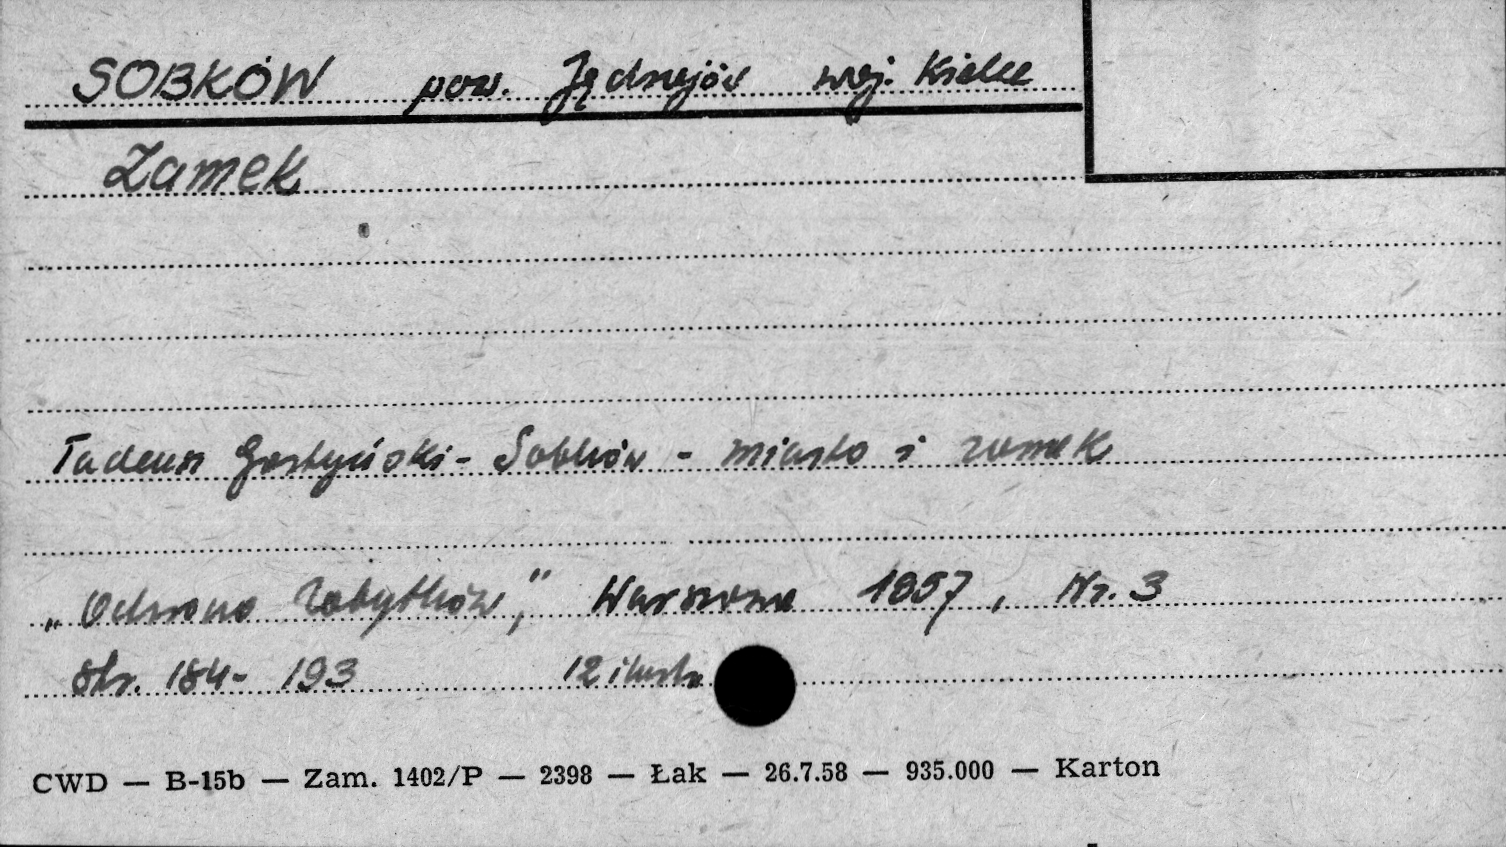 SOBKÓW pow. Jędrzejów woj. Kielce
Zamek
Tadeusz Gostyński - Sobków - miasto i zamek
„Ochrona Zabytków," Warszawa 1957, Nr. 3
str. 184-193 12 ilustr.
CWD — B-15b — Zam. 1402/P — 2398 — Łak — 26.7.58 — 935.000 — Karton